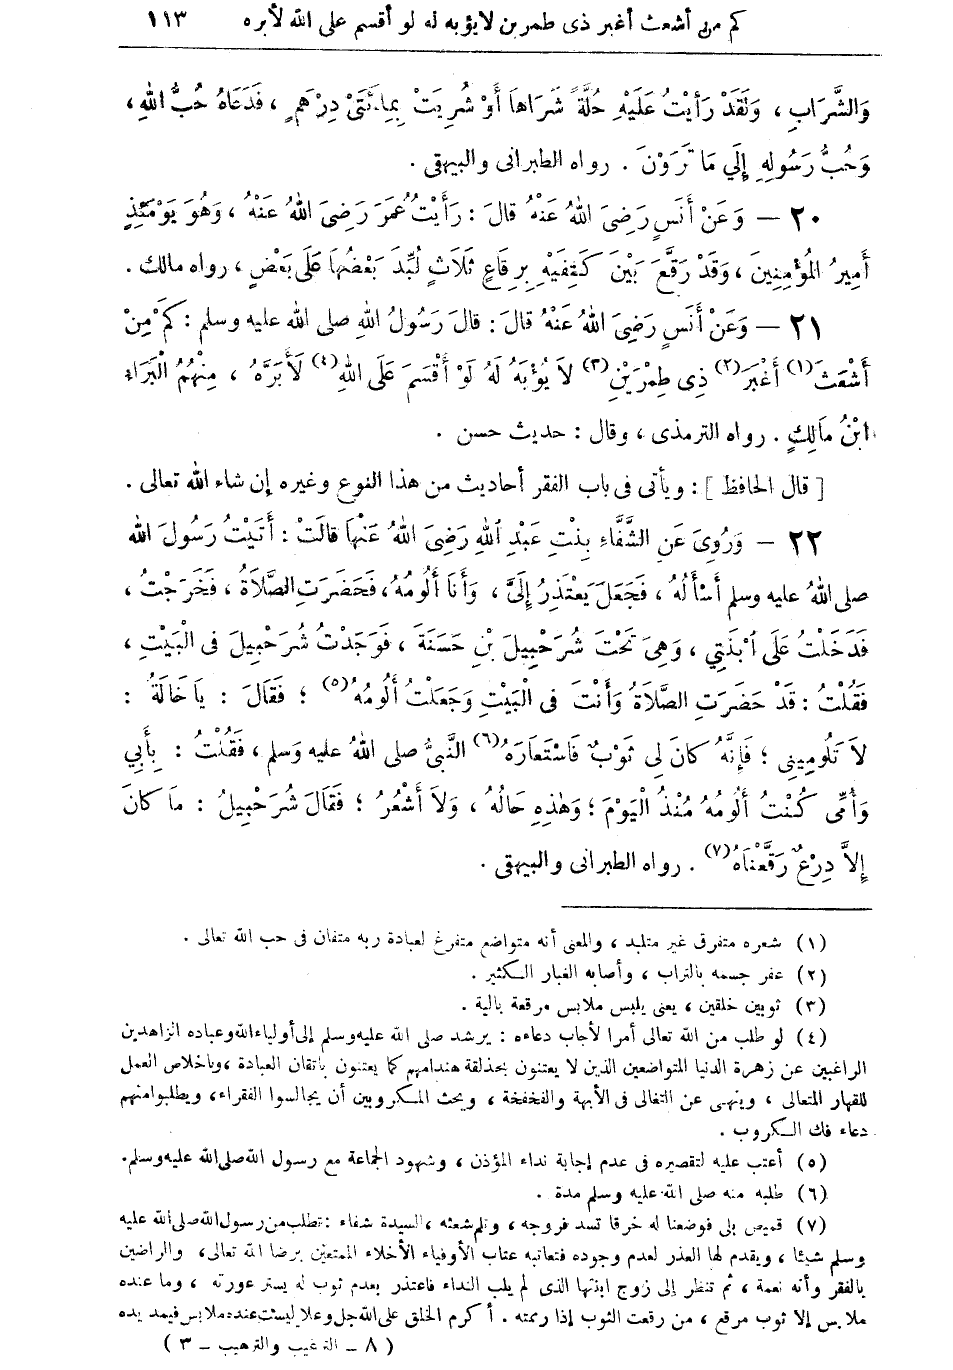 كم من أشعث أغبر ذى طمرين لا يؤبه له لو أقسم على الله لأبره ١١٣
وَالشَّرَابِ ، وَلَقَدْ رَأَيْتُ عَلَيْهِ حُلَّةً شَرَاهَا أَوْ شُرِيَتْ بِمِائَتَىْ دِرْهَمٍ ، فَدَعَاهُ حُبُّ اللهِ ،
وَحُبُّ رَسُولِهِ إِلَي مَا تَرَوْنَ . رواه الطبرانى والبيهقى .
٢٠ — وَعَنْ أَنَسٍ رَضِىَ اللهُ عَنْهُ قالَ : رَأَيْتُ عُمَرَ رَضِىَ اللهُ عَنْهُ ، وَهُوَ يَوْمَئِذٍ
أَمِيرُ المُؤْمِنِينَ ، وَقَدْ رَقَّعَ بَيْنَ كَتِفَيْهِ بِرِقَاعٍ ثَلَاثٍ لُبِّدَ بَعْضُهَا عَلَى بَعْضٍ ، رواه مالك .
٢١ — وَعَنْ أَنَسٍ رَضِىَ اللهُ عَنْهُ قالَ : قالَ رَسُولُ اللهِ صلى الله عليه وسلم : كَمْ مِنْ
أَشْعَثَ (١) أَغْبَرَ (٢) ذِى طِمْرَيْنِ (٣) لاَ يُؤْبَهُ لَهُ لَوْ أَقْسَمَ عَلَى اللهِ (٤) لَأَبَرَّهُ ، مِنْهُمُ الْبَرَاءُ
ابْنُ مَالِكٍ . رواه الترمذى ، وقال : حديث حسن .
[ قال الحافظ ] : ويأتى فى باب الفقر أحاديث من هذا النوع وغيره إن شاء الله تعالى .
٢٢ — وَرُوِىَ عَنِ الشَّفَّاءِ بِنْتِ عَبْدِ اللهِ رَضِىَ اللهُ عَنْهَا قالَتْ : أَتَيْتُ رَسُولَ الله
صلى اللهُ عليه وسلم أَسْأَلُهُ ، فَجَعَلَ يَعْتَذِرُ إِلَىَّ ، وَأَنَا أَلُومُهُ، فَحَضَرَتِ الصَّلاَةُ ، فَخَرَجْتُ ،
فَدَخَلْتُ عَلَى ابْنَتِي ، وَهِىَ تَحْتَ شُرَحْبِيلَ بْنِ حَسَنَةَ ، فَوَجَدْتُ شُرَحْبِيلَ فى الْبَيْتِ ،
فَقُلْتُ : قَدْ حَضَرَتِ الصَّلاَةُ وَأَنْتَ فى الْبَيْتِ وَجَعَلْتُ أَلُومُهُ (٥) ؛ فَقَالَ : يَا خَالَةُ :
لاَ تَلُومِينِى ؛ فَإِنَّهُ كَانَ لِى ثَوْبٌ فَاسْتَعَارَهُ (٦) النَّبىُّ صلى اللهُ عليه وَسلم ، فَقُلْتُ : بِأَبِي
وَأُمِّى كُنْتُ أَلُومُهُ مُنْذُ الْيَوْمَ ؛ وَهٰذِهِ حَالُهُ ، وَلاَ أَشْعُرُ ؛ فَقَالَ شُرَحْبِيلُ : مَا كَانَ
إِلاَّ دِرْعٌ رَقَّعْنَاهُ (٧) . رواه الطبرانى والبيهقى .
(١) شعره متفرق غير متلبد ، والمعنى أنه متواضع متفرغ لعبادة ربه متفان فى حب الله تعالى .
(٢) عفر جسمه بالتراب ، وأصابه الغبار الكثير .
(٣) ثوبين خلقين ، يعنى يلبس ملابس مرقعة بالية .
(٤) لو طلب من الله تعالى أمرا لأجاب دعاءه : يرشد صلى الله عليه وسلم إلى أولياء الله وعباده الزاهدين
الراغبين عن زهرة الدنيا المتواضعين الذين لا يعتنون بحذلقة هندامهم كما يعتنون باتقان العبادة ، وباخلاص العمل
للقهار المتعالى ، وينهى عن التغالى فى الأبهة والفخفخة ، ويحث المكروبين أن يجالسوا الفقراء، ويطلبوا منهم
دعاء فك الكروب .
(٥) أعتب عليه لتقصيره فى عدم إجابة نداء المؤذن ، وشهود الجماعة مع رسول الله صلى الله عليه وسلم.
(٦) طلبه منه صلى الله عليه وسلم مدة .
(٧) قميص بلى فوضعنا له خرقا تسد فروجه ، وتلم شعثه ، السيدة شفاء : تطلب من رسول الله صلى الله عليه
وسلم شيئا ، ويقدم لها العذر لعدم وجوده فتعاتبه عتاب الأوفياء الأخلاء الممتعين برضا الله تعالى، والراضين
بالفقر وأنه نعمة ، ثم تنظر إلى زوج ابنتها الذى لم يلب النداء فاعتذر بعدم ثوب له يستر عورته ، وما عنده
ملابس إلا ثوب مرقع ، من رقعت الثوب إذا رممته . أكرم الخلق على الله جل وعلا ليست عنده ملابس فيمد يده
( ٨ – الترغيب والترهيب – ٣ )